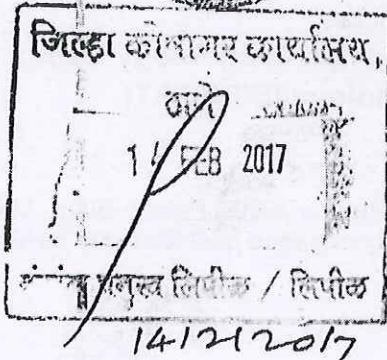 जिल्हा कोषागर कार्यालय,
ठाणे
14 FEB 2017
प्रमुख लिपीक / लिपीक
14/2/2017